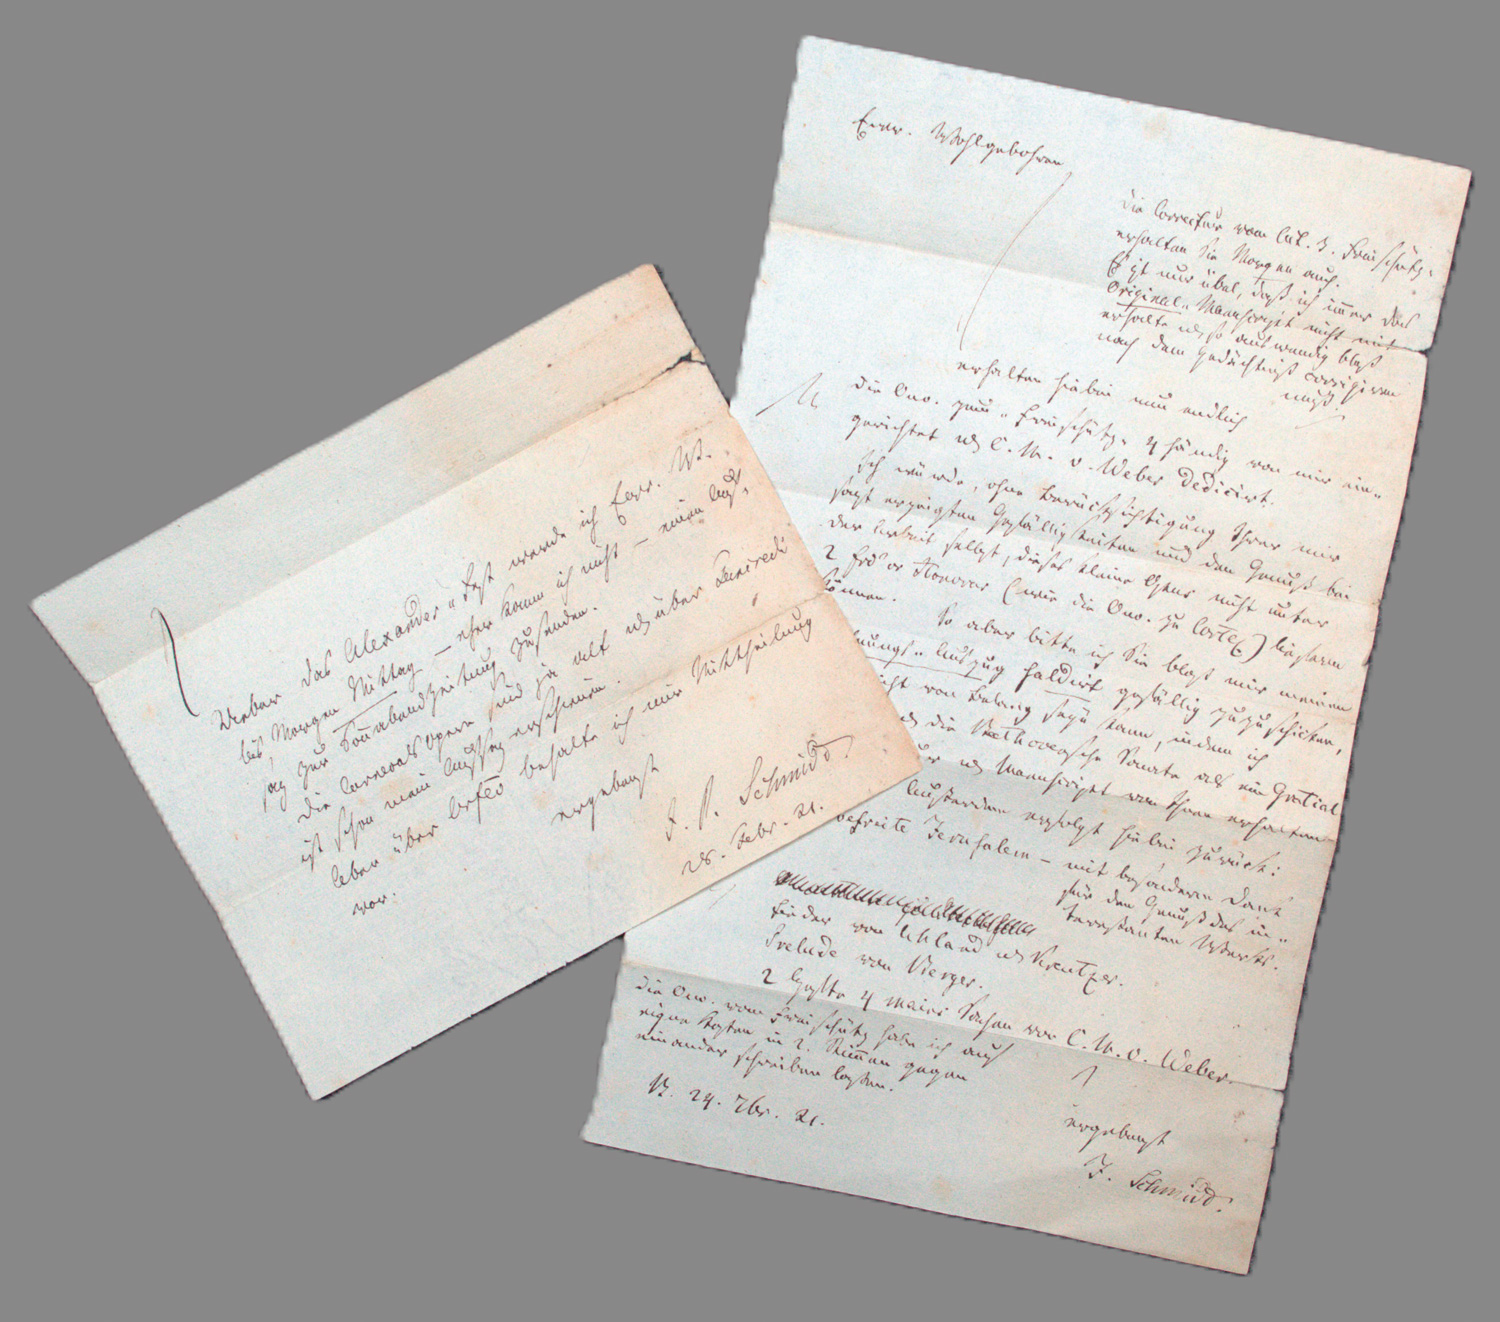 Ueber das Alexander-Fest werde ich Ewr. W.
bis Morgen Mittag – eher kann ich nicht – einen Auf-
satz zur Sonnabendzeitung zusenden.
die Carnevals Opern sind ja alt u über Tancredi
ist schon mein Aufsatz erschienen.
Ueber Orfeo behalte ich mir Mittheilung
vor.
ergebenst
J. P. Schmidt.
28. Febr. 21.
Ewr. Wohlgebohren
die Correctur vom Freischütz
erhalten Sie Morgen auch.
Es ist nur übel, daß ich immer das
Original-Manuscript nicht mit
erhalte u so auswendig bloß
nach dem Gedächtniß corrigiren
muß.
erhalten hiebei nun endlich
die Ouv. zum Freischütz 4händig von mir ein-
gerichtet u C. M. v. Weber dedicirt.
Ich würde, ohne Berücksichtigung Ihrer mir
sonst erzeigten Gefälligkeiten und den Genuß bei
der Arbeit selbst, dieses kleine Opus nicht unter
2 Frd'or Honorar (wie die Ouv. zu Cortez) liefern
können.
So aber bitte ich Sie bloß mir meinen
nungs-Auszug saldirt gefällig zuzuschicken,
nicht von Belang seyn kann, indem ich
die Beethovensche Sonate als ein Gratial
u Manuscript von Ihnen erhalten
Außerdem erfolgt hiebei zurück:
befreite Jerusalem – mit besonderm Dank
für den Genuß des in-
teressanten Werks.
Lieder von Uhland u Kreutzer.
Prelude von Berger.
2 Hefte 4 mains Sachen von C. M. v. Weber.
die Ouv. vom Freischütz habe ich auf
eigne Kosten in 2 Stimmen gegen
einander schreiben lassen.
B. 24. 7br. 21.
ergebenst
J. Schmidt.